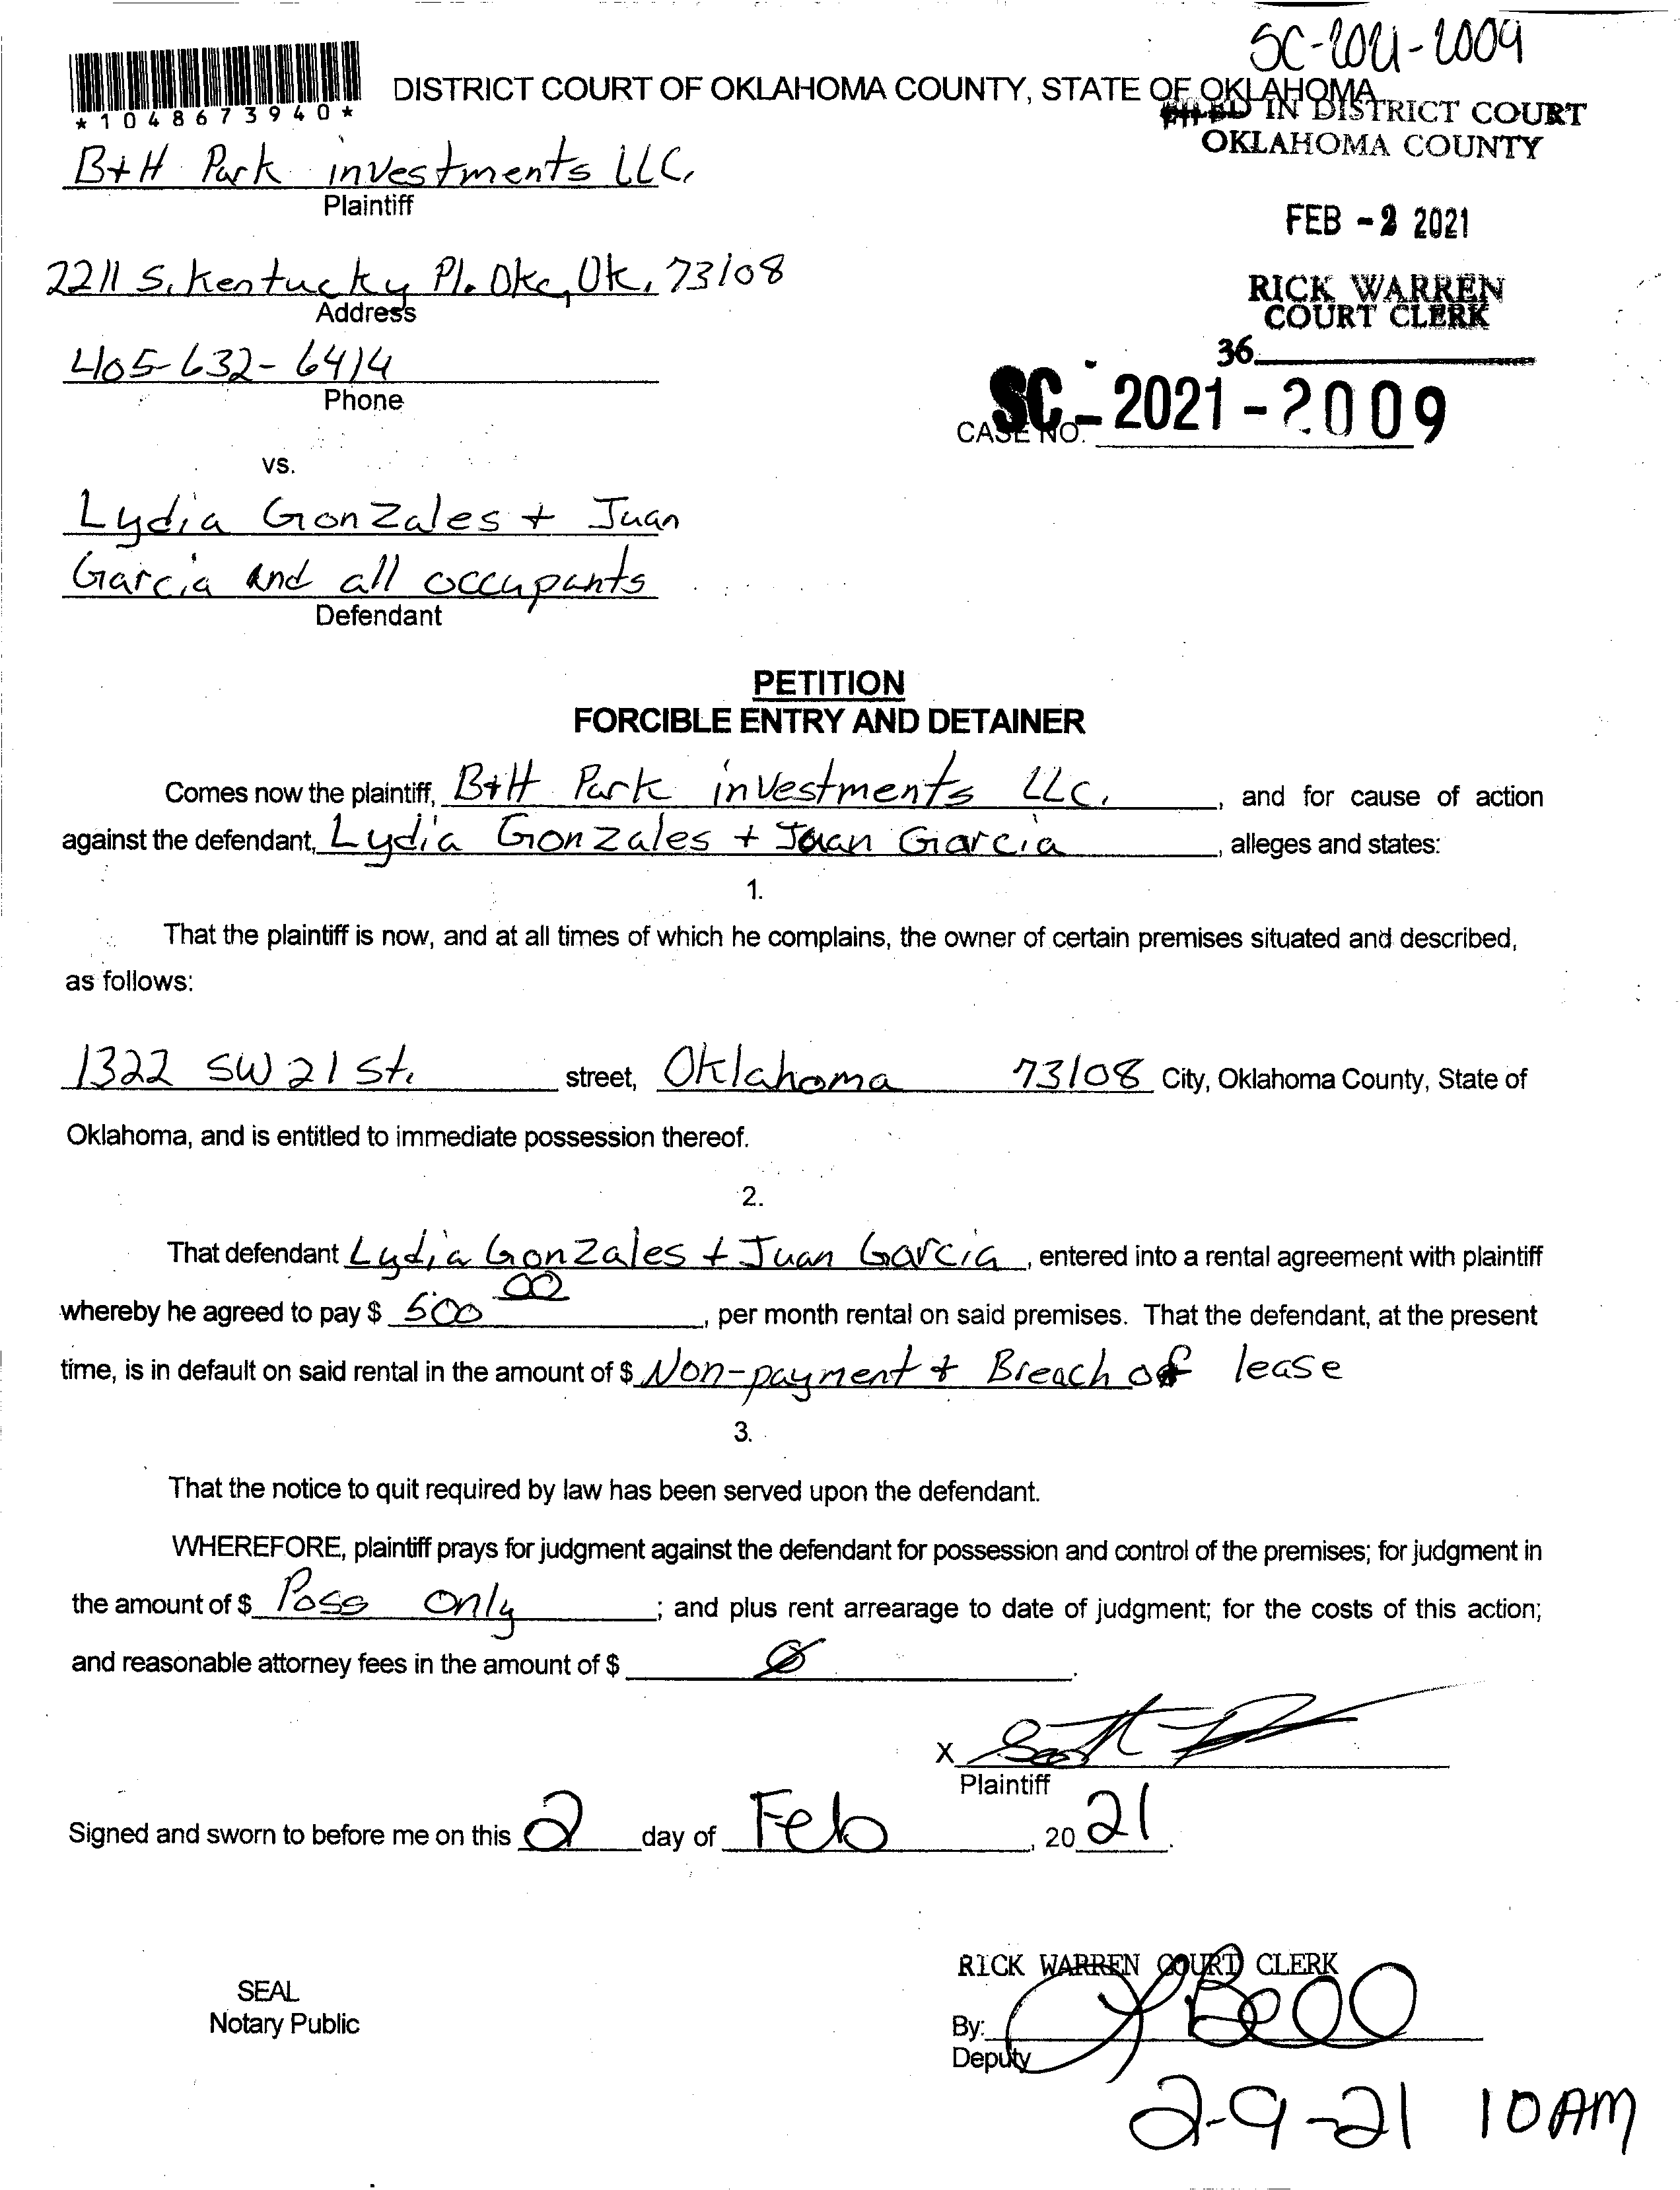 SC-2021-2009
*1048673940*
DISTRICT COURT OF OKLAHOMA COUNTY, STATE OF OKLAHOMA
FILED IN DISTRICT COURT
OKLAHOMA COUNTY
B+H Park investments LLC.
Plaintiff
FEB -2 2021
2211 S. Kentucky Pl. Okc, Ok. 73108
Address
RICK WARREN
COURT CLERK
405-632-6414
Phone
36
SC-2021-2009
CASE NO.
vs.
Lydia Gonzales + Juan
Garcia and all occupants
Defendant
PETITION
FORCIBLE ENTRY AND DETAINER
Comes now the plaintiff, B+H Park investments LLC. , and for cause of action
against the defendant, Lydia Gonzales + Juan Garcia , alleges and states:
1.
That the plaintiff is now, and at all times of which he complains, the owner of certain premises situated and described,
as follows:
1322 SW 21 St. street, Oklahoma 73108 City, Oklahoma County, State of
Oklahoma, and is entitled to immediate possession thereof.
2.
That defendant Lydia Gonzales + Juan Garcia , entered into a rental agreement with plaintiff
whereby he agreed to pay $ 500 00 , per month rental on said premises. That the defendant, at the present
time, is in default on said rental in the amount of $ Non-payment + Breach of lease
3.
That the notice to quit required by law has been served upon the defendant.
WHEREFORE, plaintiff prays for judgment against the defendant for possession and control of the premises; for judgment in
the amount of $ Poss only ; and plus rent arrearage to date of judgment; for the costs of this action;
and reasonable attorney fees in the amount of $ Ø .
X
Plaintiff
Signed and sworn to before me on this 2 day of Feb , 20 21 .
RICK WARREN COURT CLERK
SEAL
Notary Public
By:
Deputy
2-9-21 10AM